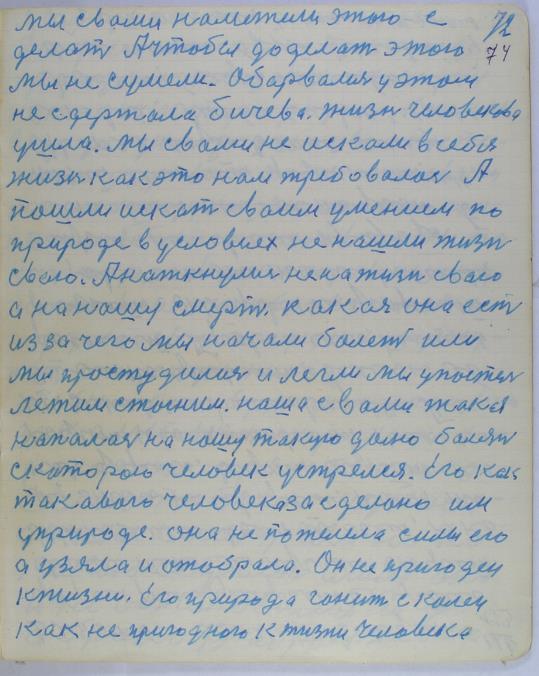 мы свами наметели этого с 72
делат Ачтобы доделат этого 74
мы не сумели. Обарвалия у этом
не сдержала бичева. жизн человекова
ушла. мы свами не искали в себя
жизн как это нам требовалоя А
пошли искат своим умением по
природе в условиех не нашли жизн
свого. Анаткнулия не на жизн сваго
а на нашу смерт. какая она ест
из за чего мы начали болет или
мы простудилия и легли мы упостел
лежим стоним. наша с вами така
напалая на нашу такую долю боляч
скоторою человек устрелся. Его как
такового человека за сделано им
уприроде. она не пожелела силы его
а узяла и отобрала. Он не пригоден
кжизни. Его природа гонит сколеи
как не пригодного к жизни человека